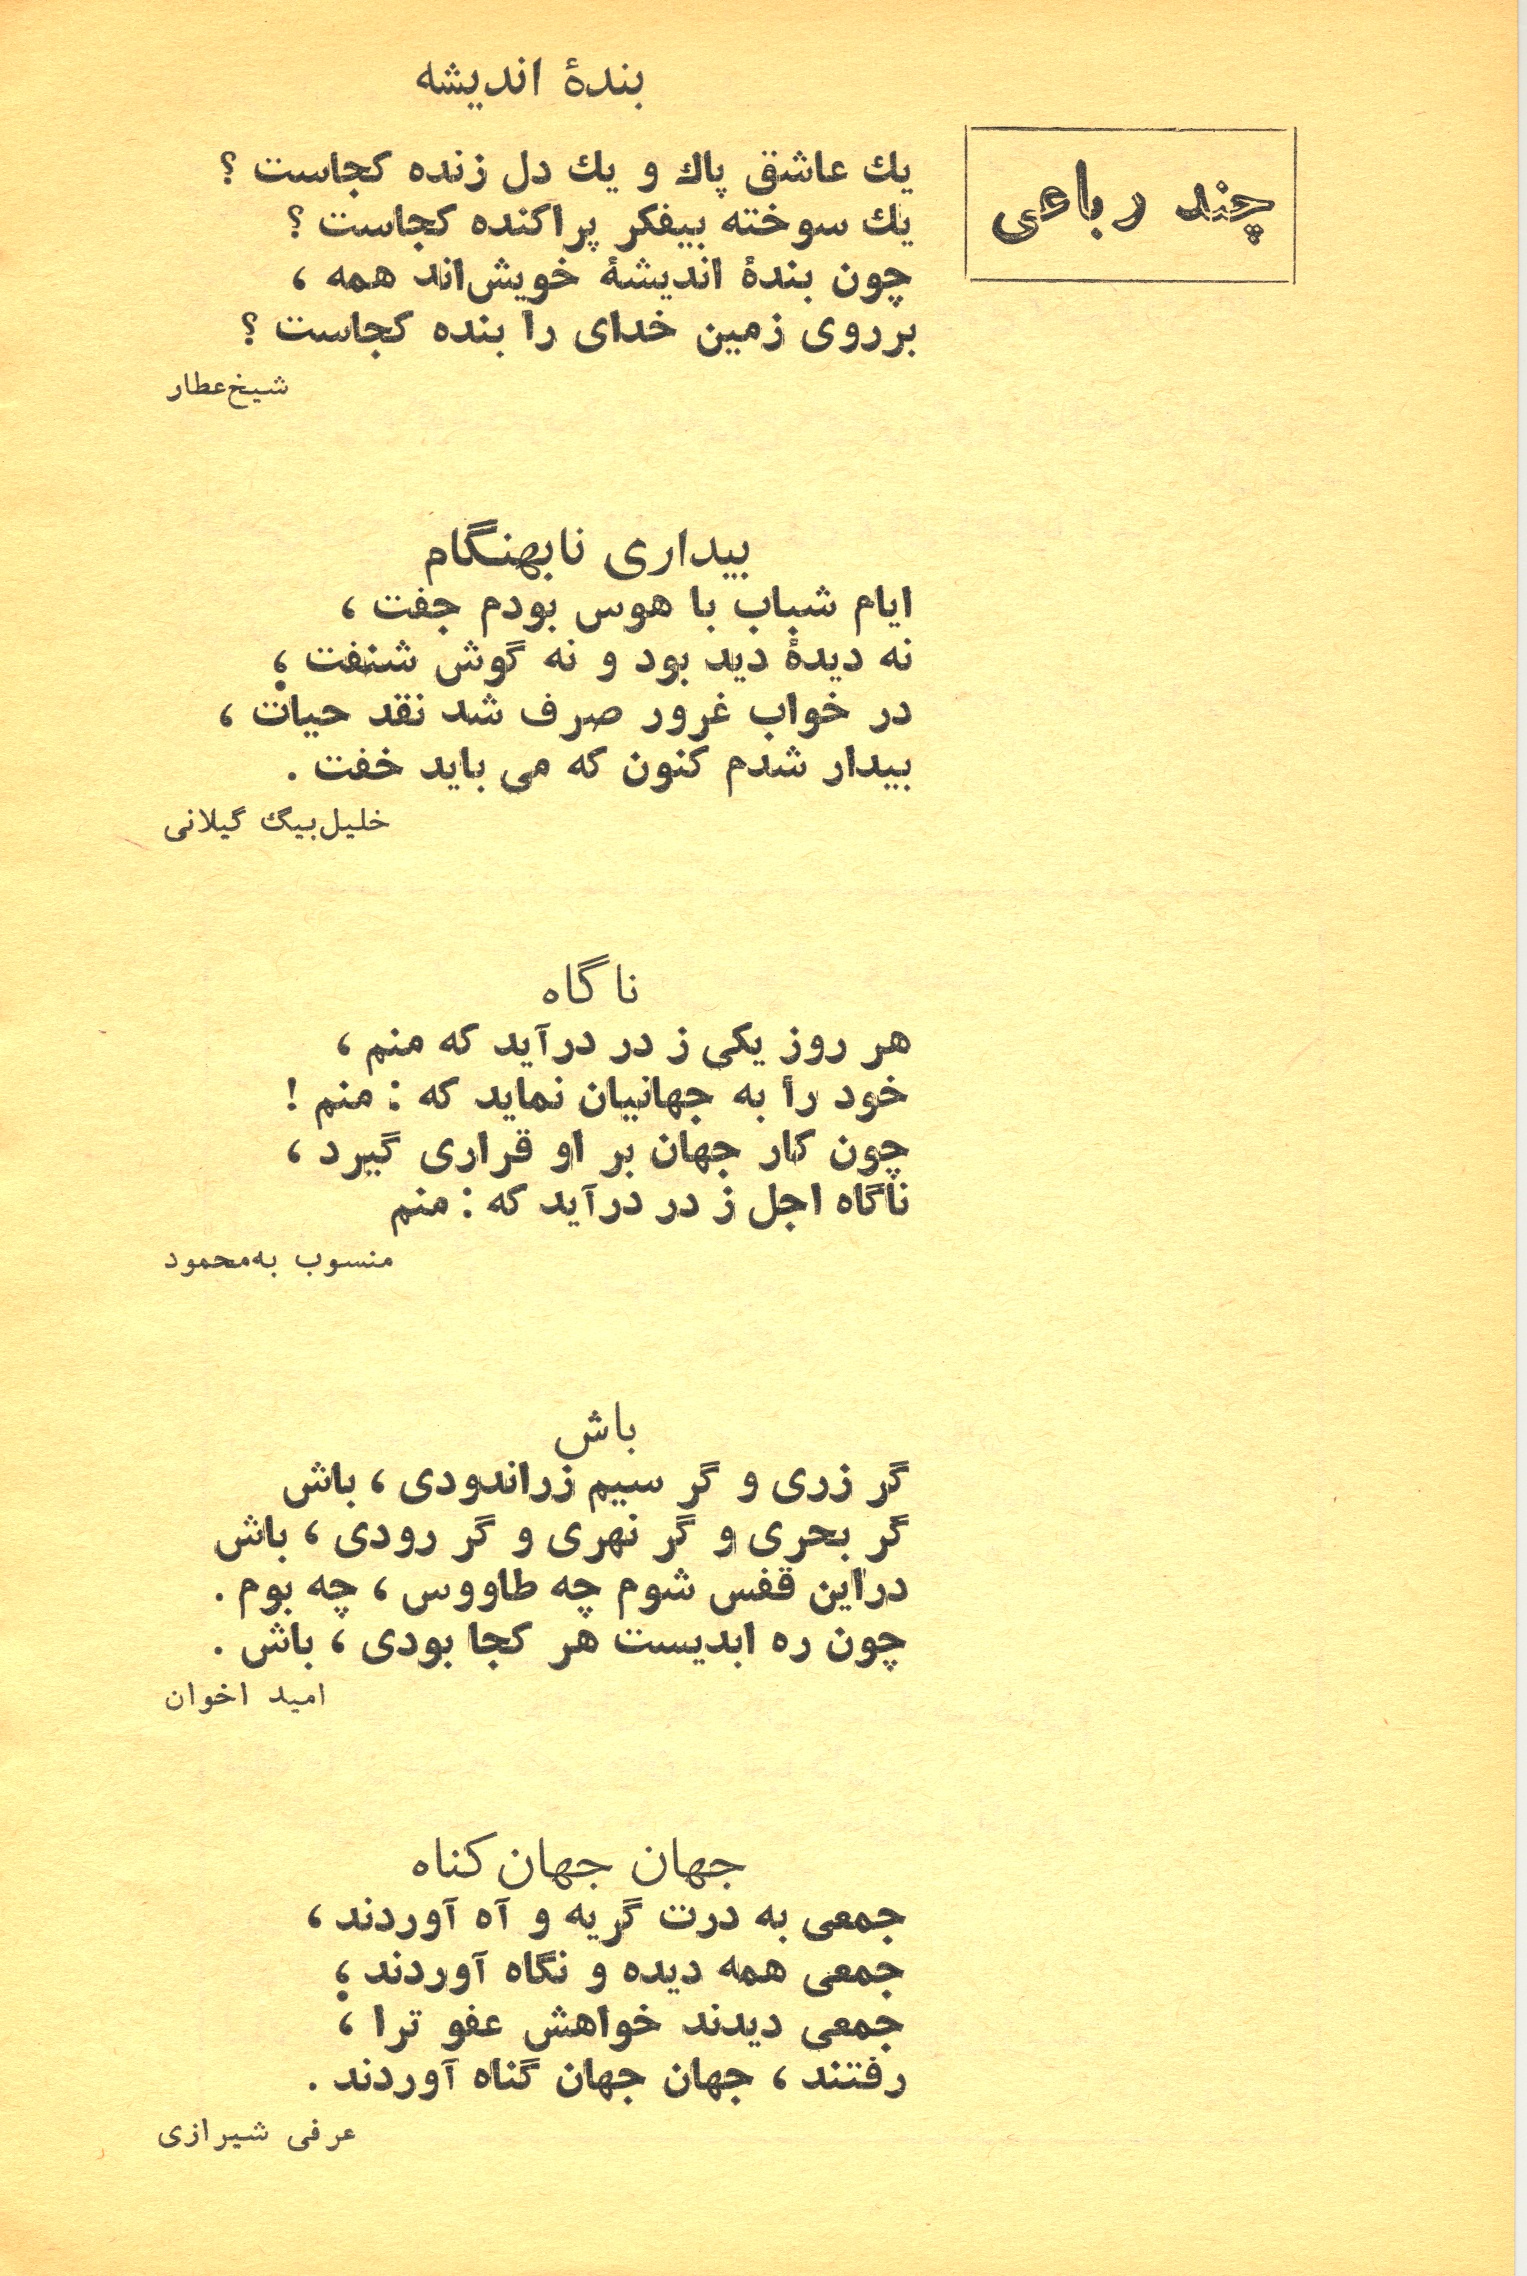 چند رباعی
بندهٔ اندیشه
یك عاشق پاك و یك دل زنده کجاست ؟
یك سوخته بیفکر پراکنده کجاست ؟
چون بندهٔ اندیشهٔ خویش‌اند همه ،
برروی زمین خدای را بنده کجاست ؟
شیخ‌عطار
بیداری نابهنگام
ایام شباب با هوس بودم جفت ،
نه دیدهٔ دید بود و نه گوش شنفت ؛
در خواب غرور صرف شد نقد حیات ،
بیدار شدم کنون که می باید خفت .
خلیل‌بیگ گیلانی
ناگاه
هر روز یکی ز در درآید که منم ،
خود را به جهانیان نماید که : منم !
چون کار جهان بر او قراری گیرد ،
ناگاه اجل ز در درآید که : منم
منسوب به‌محمود
باش
گر زری و گر سیم زراندودی ، باش
گر بحری و گر نهری و گر رودی ، باش
دراین قفس شوم چه طاووس ، چه بوم .
چون ره ابدیست هر کجا بودی ، باش .
امید اخوان
جهان جهان کناه
جمعی به درت گریه و آه آوردند ،
جمعی همه دیده و نگاه آوردند ؛
جمعی دیدند خواهش عفو ترا ،
رفتند ، جهان جهان گناه آوردند .
عرفی شیرازی